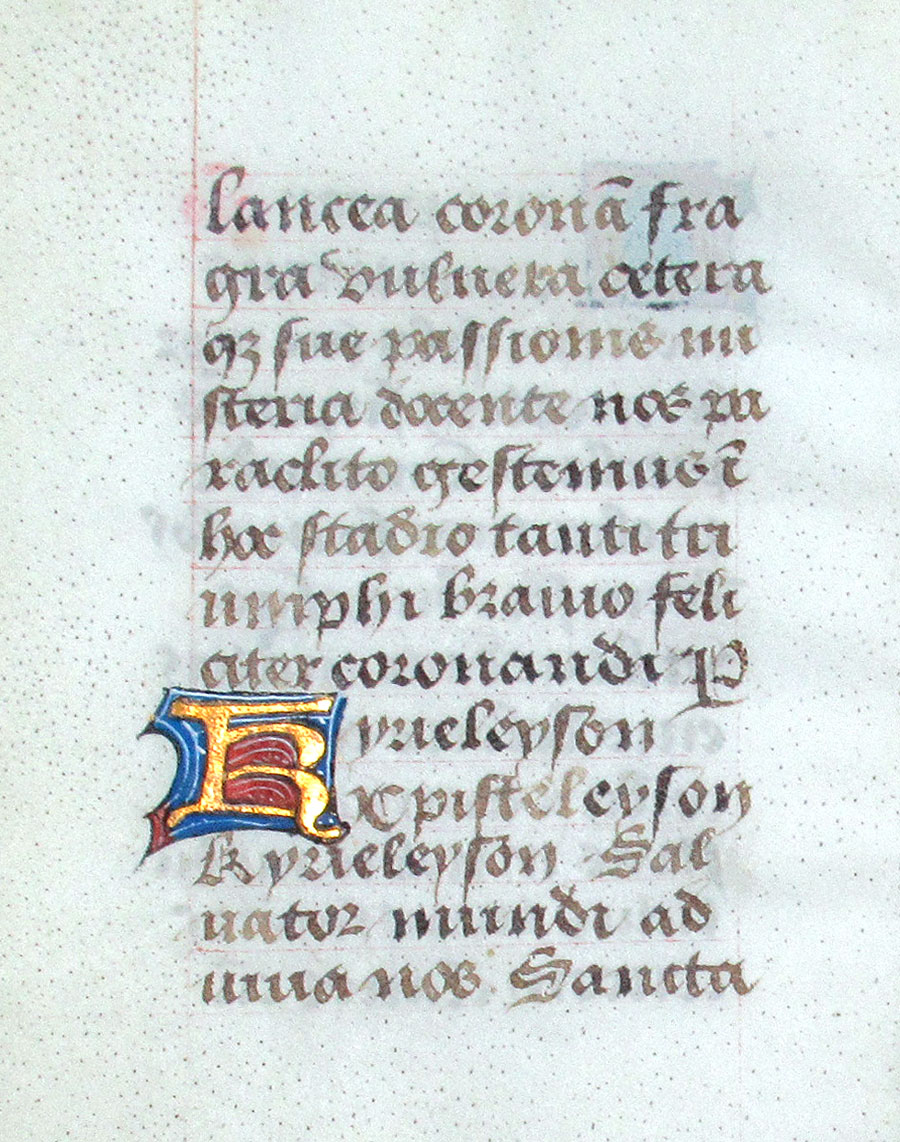 lancea coronā fra
gra vulnera cetera
qꝫ sue passionis mi
steria docente nos pa
raclito gestemus ī
hoc stadio tanti tri
umphi brauio feli
citer coronandi P
Kyrieleyson
xpisteleyson
Kyrieleyson Sal
uator mundi ad
iuua nos. Sancta